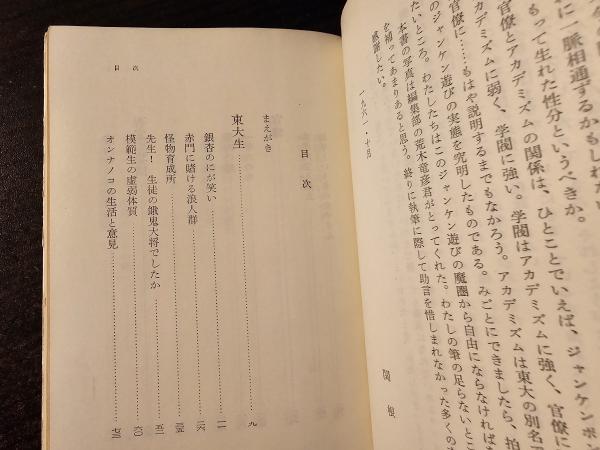 に一脈相通ずるかもしれない
もって生れた性分というべきか。
官僚とアカデミズムの関係は、ひとことでいえば、ジャンケンポン
カデミズムに弱く、学閥に強い。学閥はアカデミズムに強く、官僚に
官僚に……もはや説明するまでもなかろう。アカデミズムは東大の別名
ャンケン遊びの実態を究明したものである。みごとにできましたら、拍
たいところ。わたしたちはこのジャンケン遊びの魔圏から自由にならなければ
本書の写真は編集部の荒木竜彦君がとってくれた。わたしの筆の足らないとこ
を補ってあまりあると思う。終りに執筆に際して助言を惜しまれなかった多くの
感謝したい。
一九六一・十月
関根
目次
まえがき
東大生……九
銀杏のにが笑い……一一
赤門に賭ける浪人群……
怪物育成所……
先生！ 生徒の餓鬼大将でしたか……
模範生の虚弱体質……六〇
オンナノコの生活と意見……
目次